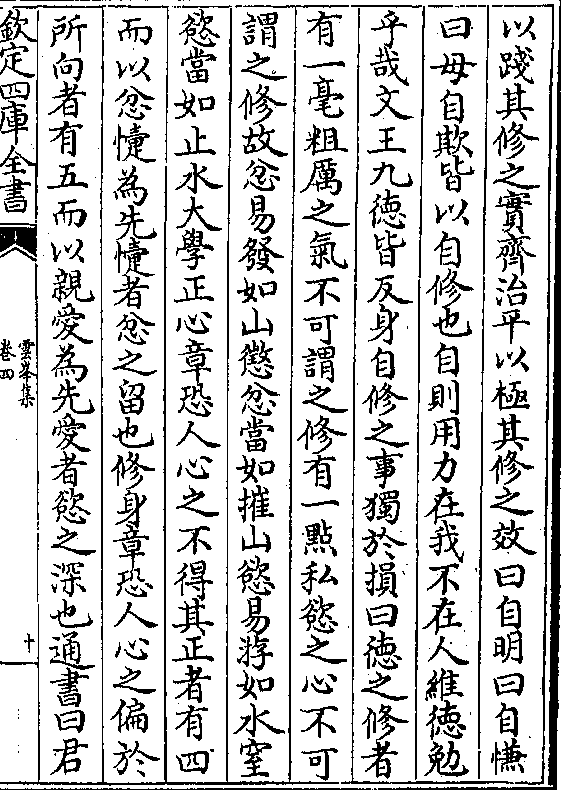 以踐其修之實齊治平以極其修之效曰自明曰自慊
曰毋自欺皆以自修也自則用力在我不在人維德勉
乎哉文王九德皆反身自修之事獨於損曰德之修者
有一毫粗厲之氣不可謂之修有一點私慾之心不可
謂之修故忿易發如山懲忿當如摧山慾易泲如水窒
慾當如止水大學正心章恐人心之不得其正者有四
而以忿懥為先懥者忿之留也修身章恐人心之偏於
所向者有五而以親愛為先愛者慾之深也通書曰君
欽定四庫全書
雲峯集
卷四
十